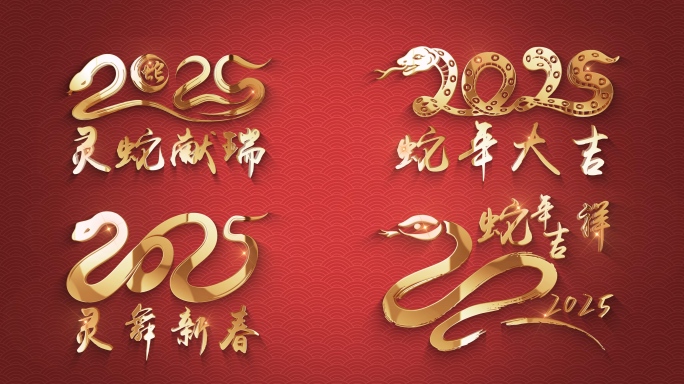 2025
灵蛇献瑞
2025
蛇年大吉
2025
灵舞新春
蛇年吉祥
2025